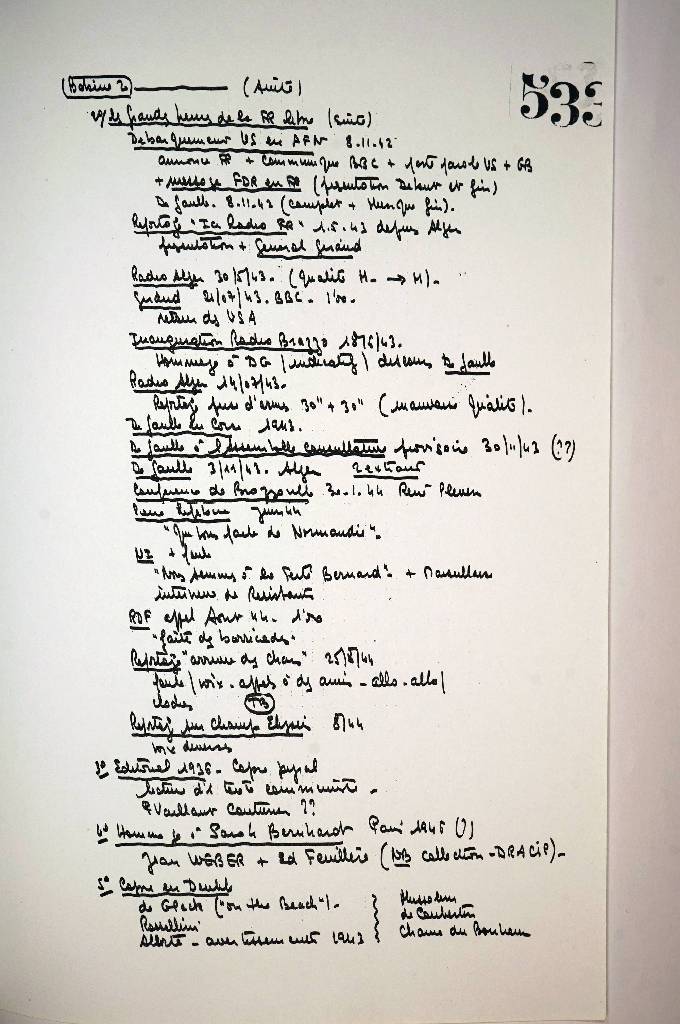 533
Bobine 2 (Suite)
2°/ Les Grandes heures de la FR libre (suite)
Debarquement US en AFN 8.11.42
annonce FR + Communiqué BBC + porte parole US + GB
+ message FDR en FR (presentation Debut et fin)
De Gaulle. 8.11.42 (complet + manque fin).
Reportage "Ici Radio FR" 1.5.43 depuis Alger
presentation + General Giraud
Radio Alger 30/5/43. (Qualité M. → M).
Giraud 21/07/43. BBC. 1'00.
retour des USA
Inauguration Radio Brazza 18/6/43.
Hommage à DG (indicatif) discours De Gaulle
Radio Alger 14/07/43.
Reportage prise d'armes 30" + 30" (mauvaise Qualité).
De Gaulle en Corse 1943.
De Gaulle à l'Assemblée consultative provisoire 30/11/43 (??)
De Gaulle 3/11/43. Alger 2 extraits
Conférence de Brazzaville 30.1.44 René Pleven
Pierre Lefebvre Juin 44
de Normandie".
+
"Nous sommes à la Ferté Bernard". + Marseillaise
interview de Resistants
RDF appel Aout 44. 1'00
"faite des barricades"
Reportage "arrivée des chars" 25/8/44
foule / voix. appels à des amis - allo. allo /
cloches TB
Reportage sur Champs Elysées 8/44
voix diverses
3° Editorial 1936. Copie pyral
lecture d'1 texte communiste.
P Vaillant Couturier ??
4° Hommage à Sarah Bernhardt Paris 1945 ()
Jean WEBER + Ed Feuillère (NB collection - DRACIP).
5° Copie en Double
de GPeck ("on the Beach").
Rossellini
avertissement 1943
Mussolini
de Coubertin
Chaine du Bonheur